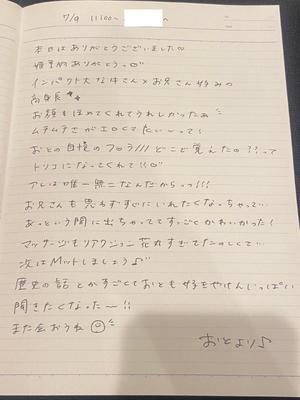 7/9 11:00〜 へ
本日はありがとうございました♡
ありがとうっ♡
インパクト大な体さん×お兄さん好みの
高身長
お顔もほめてくれてうれしかったぁ
ムチムチさがエロくて
おとの自慢のフロラ///どこで覚えたの??って
トリコになってくれて!!♡
アレは唯一無二なんだからっ!!!
お兄さんも思わずすぐにいれたくなっちゃって…
あっという間に出ちゃっててすっごくかわいかった!
マッサージもリアクション花丸すぎてたのしくて…
次はMットしましょう♪
歴史の話とかすごくておとも
聞きたくなった〜!!
また会おうね
おとより♪